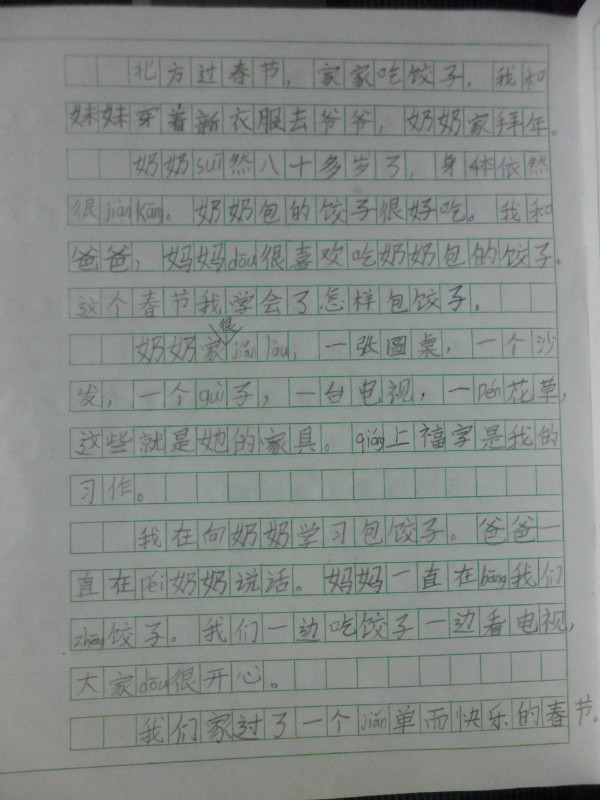 北方过春节，家家吃饺子，我和
妹妹穿着新衣服去爷爷，奶奶家拜年。
奶奶suī然八十多岁了，身体依然
很jiànkāng。奶奶包的饺子很好吃。我和
爸爸，妈妈dōu很喜欢吃奶奶包的饺子。
这个春节我学会了怎样包饺子。
奶奶家很jiǎn lòu，一张圆桌，一个沙
发，一个guì子，一台电视，一Pén花草，
这些就是她的家具。qiáng上福字是我的
习作。
我在向奶奶学习包饺子。爸爸一
直在Péi奶奶说话。妈妈一直在bāng我们
zhēng饺子。我们一边吃饺子一边看电视，
大家dōu很开心。
我们家过了一个jiǎn单而快乐的春节。